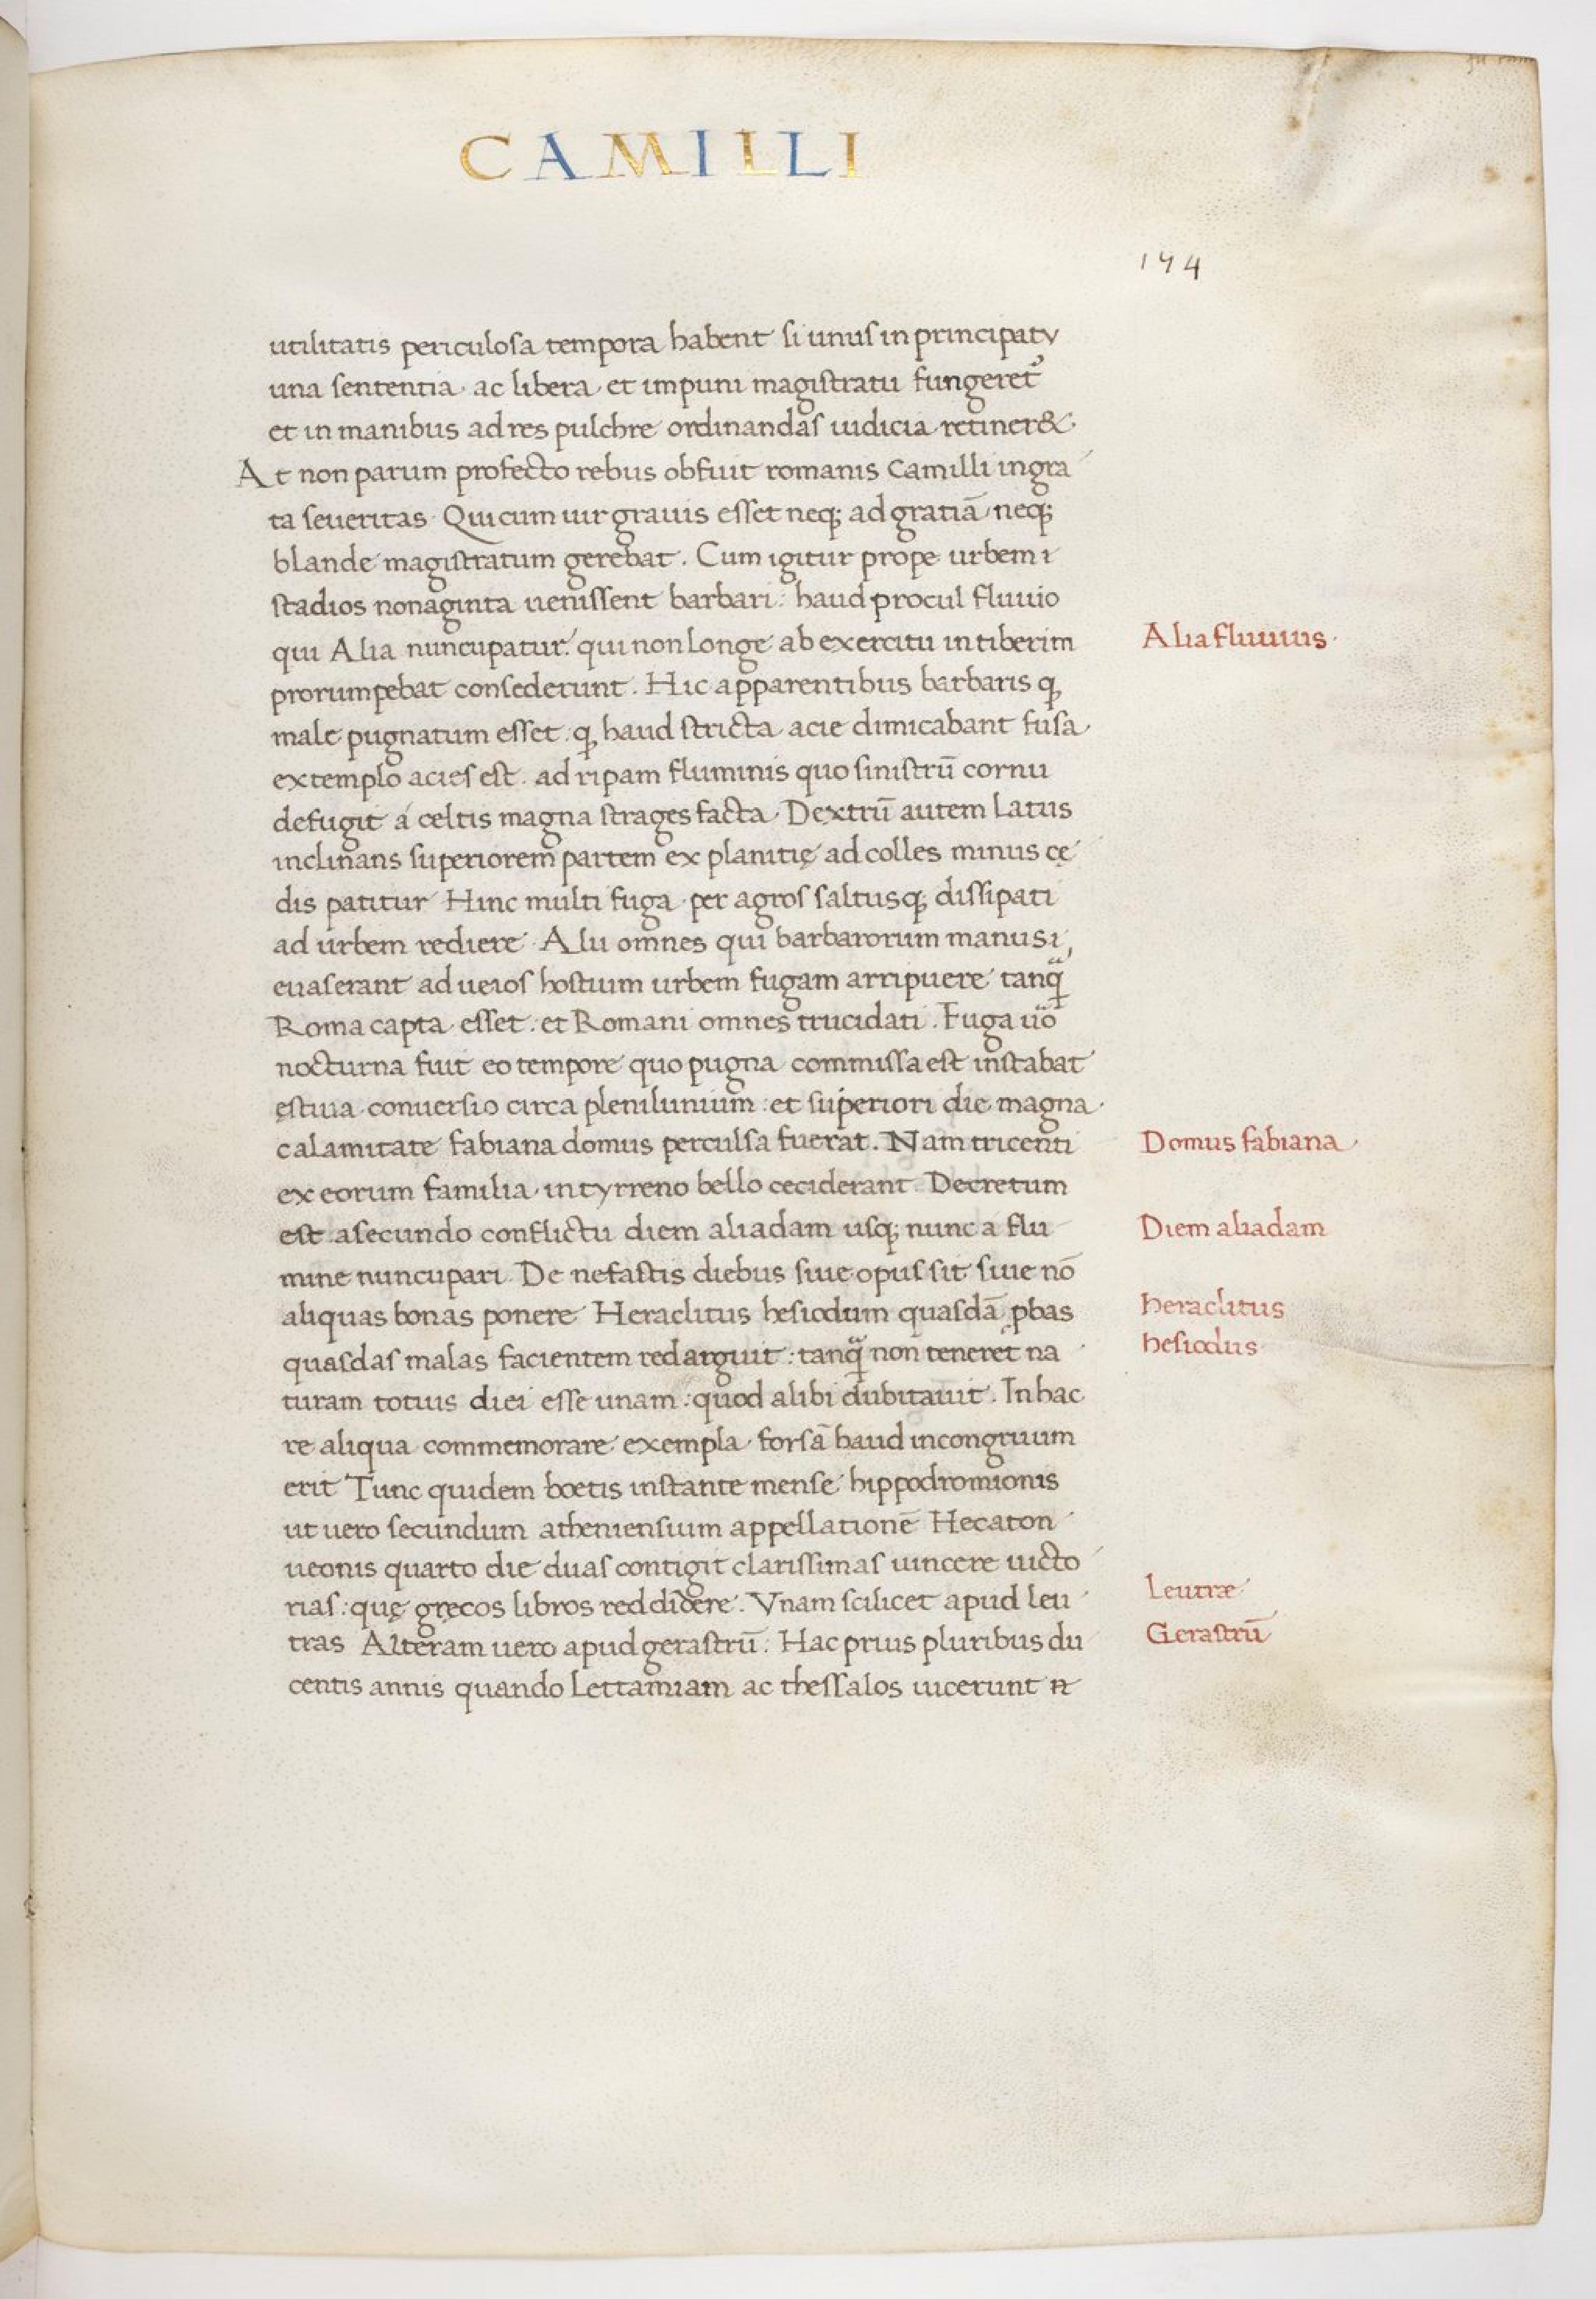 CAMILLI
144
utilitatis periculosa tempora habent si unus in principatv
una sententia ac libera et impuni magistratu fungeret᷒
et in manibus ad res pulchre ordinandas iudicia retiner&.
At non parum profecto rebus obfuit romanis Camilli ingra
ta seueritas. Qui cum uir grauis esset neq; ad gratiā neq;
blande magistratum gerebat. Cum igitur prope urbem
stadios nonaginta uenissent barbari: haud procul fluuio
qui Alia nuncupatur: qui non longe ab exercitu in tiberim
Alia fluuius.
prorumpebat consederunt. Hic apparentibus barbaris ꝙ
male pugnatum esset. ꝙ haud stricta acie dimicabant fusa
extemplo acies est. ad ripam fluminis quo sinistrū cornu
defugit á celtis magna strages facta. Dextrū autem latus
inclinans superiorem partem ex planitię ad colles minus cę
dis patitur Hinc multi fuga per agros saltusq; dissipati
ad urbem rediere. Alii omnes qui barbarorum manus
euaserant ad ueios hostium urbem fugam arripuere tanꝗ̃
Roma capta esset: et Romani omnes trucidati. Fuga uō
nocturna fuit eo tempore quo pugna commissa est instabat
ęstiua conuersio circa plenilunium: et superiori die magna
calamitate fabiana domus perculsa fuerat. Nam tricenti
Domus fabiana
ex eorum familia in tyrreno bello ceciderant. Decretum
est a secundo conflictu diem aliadam usq; nunc a flu
Diem aliadam
mine nuncupari. De nefastis diebus siue opus sit siue nō
aliquas bonas ponere Heraclitus hesiodum quasdā ꝓbas
heraclitus
quasdas malas facientem redarguit: tanꝗ̃ non teneret na
hesiodus
turam totius diei esse unam: quod alibi dubitauit. In hac
re aliqua commemorare exempla forsā haud incongruum
erit Tunc quidem boetis instante mense hippodromionis
ut uero secundum atheniensium appellationē Hecaton
ueonis quarto die duas contigit clarissimas uincere uicto
rias: quę gręcos libros reddidere. Vnam scilicet apud leu
Leutræ
tras Alteram uero apud gerastrū. Hac prius pluribus du
Gerastrū
centis annis quando Lettamiam ac thessalos uicerunt